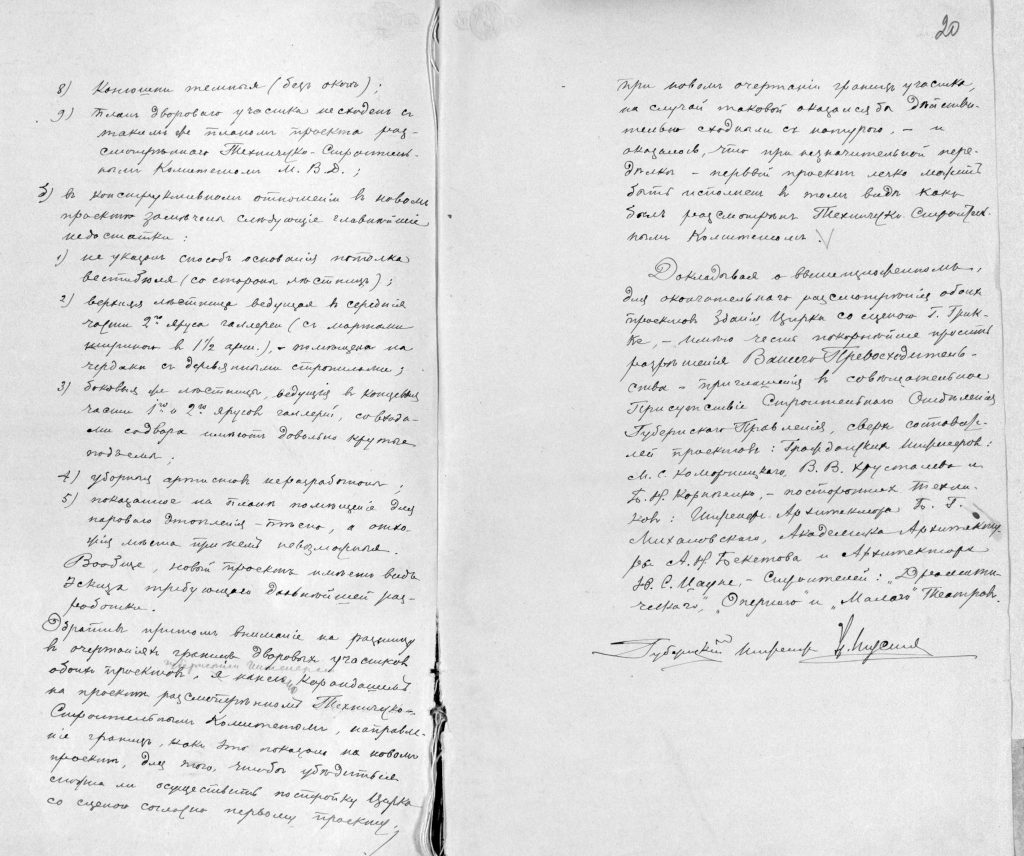 8) Конюшни темныя (безъ оконъ);
9) Планъ двороваго участка несходенъ съ
такимъ же планомъ проекта раз-
смотрѣннаго Техническо-Строитель-
нымъ Комитетомъ М. В. Д.;
б) въ конструктивномъ отношеніи въ новомъ
проектѣ замѣчены слѣдующіе главнѣйшіе
недостатки:
1) не указанъ способъ основанія потолка
вестибюля (со стороны лѣстницъ);
2) верхняя лѣстница ведущая въ середнія
части 2го яруса галлереи (съ маршами
шириною въ 1½ арш.), – помѣщена на
чердакѣ съ деревянными стропилами;
3) боковыя же лѣстницы, ведущія въ концевыя
части 1го и 2го ярусовъ галлерей, со входа-
ми со двора имѣютъ довольно крутые
подъемы;
4) уборныя артистовъ неразработаны;
5) показанное на планѣ помѣщеніе для
пароваго отопленія – тѣсно, а отхо-
жія мѣста при немъ невозможныя.
Вообще, новый проектъ имѣетъ видъ
эскиза требующаго дальнѣйшей раз-
работки.
Обративъ притомъ вниманіе на разницу
въ очертаніяхъ границъ дворовыхъ участковъ
обоихъ проектовъ, я нанесъ карандашемъ
на проектѣ разсмотрѣнномъ Техническо-
Строительнымъ Комитетомъ, направле-
ніе границъ, какъ это показано на новомъ
проектѣ, для того, чтобы убѣдиться
можно ли осуществить постройку Цирка
со сценою согласно первому проекту,
20
при новомъ очертаніи границъ участка,
на случай таковой оказался бы дѣйстви-
тельно сходнымъ съ натурою, – и
оказалось, что при незначительной пере-
дѣлкѣ – первый проектъ легко можетъ
быть исполненъ въ томъ видѣ какъ
былъ разсмотрѣнъ Техническо-Строитель-
нымъ Комитетомъ.
Докладывая о вышеизложенномъ,
для окончательнаго разсмотрѣнія обоихъ
проектовъ зданія Цирка со сценою Г. Грик-
ке, – имѣю честь покорнѣйше просить
разрѣшенія Вашего Превосходитель-
ства – приглашенія въ совѣщательное
Присутствіе Строительнаго Отдѣленія
Губернскаго Правленія, сверхъ составите-
лей проектовъ: Гражданскихъ Инженеровъ:
М. С. Коморницкаго, В. В. Хрусталева и
Б. Н. Корниенко, – постороннихъ Техни-
ковъ: Инженеръ Архитектора Б. Г.
Михаловскаго, Академика Архитекту-
ры А. Н. Бекетова и Архитектора
Ю. С. Цауне, – Строителей: „Драмати-
ческаго", „Опернаго" и „Малаго" Театровъ.
Губернскій Инженеръ